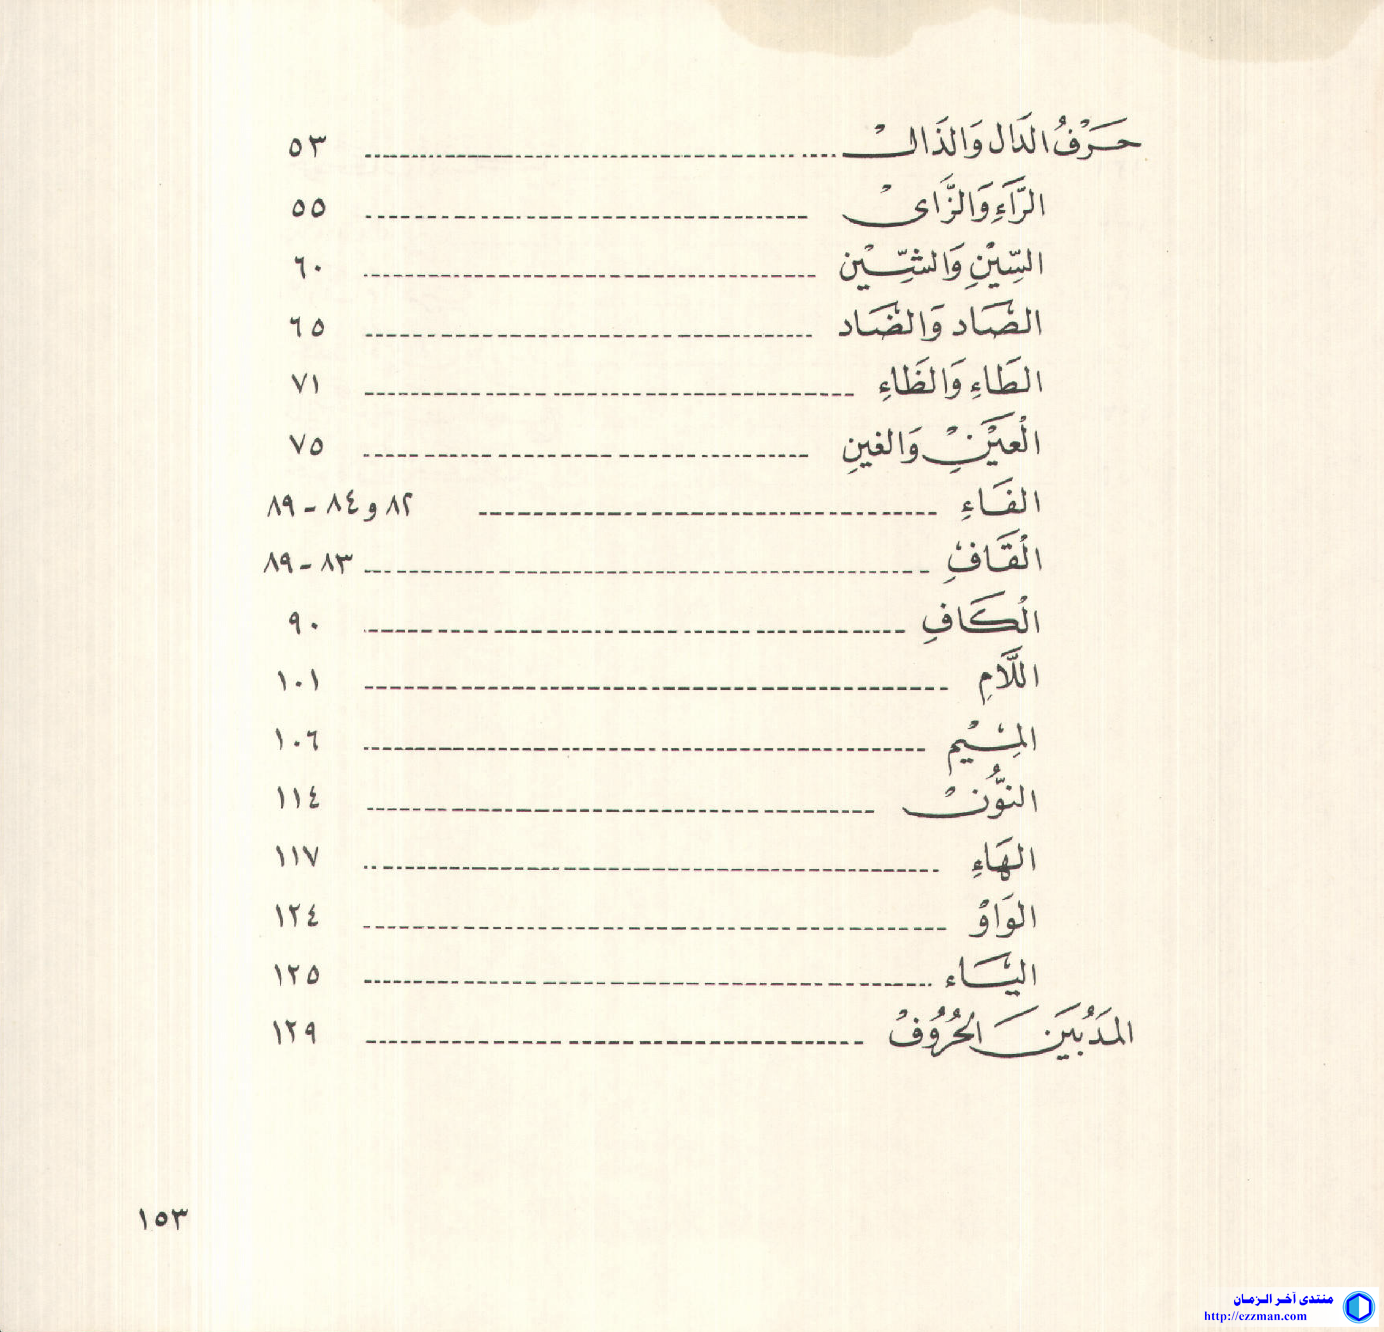 حَرْفُ الدَال وَالذَالْ ........ ٥٣
الرَّاءِ وَالزَّاىْ ........ ٥٥
السِّيْنِ وَالشِّيْن ........ ٦٠
الصَّاد وَالضَّاد ........ ٦٥
الطَاءِ وَالظَاءِ ........ ٧١
الْعَيْنِ وَالغينِ ........ ٧٥
الفَاءِ ........ ٨٢ و ٨٤ - ٨٩
الْقَافِ ........ ٨٣ - ٨٩
الْكَافِ ........ ٩٠
اللَّامِ ........ ١٠١
المِيْم ........ ١٠٦
النُّونْ ........ ١١٤
الهَاءِ ........ ١١٧
الوَاوْ ........ ١٢٤
اليَاء ........ ١٢٥
المَدُ بَيْنَ الحُرُوُفْ ........ ١٢٩
١٥٣
منتدى آخر الزمان
http://ezzman.com